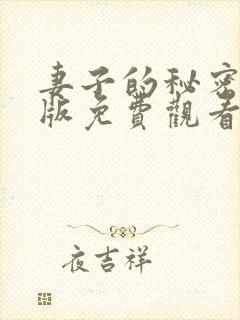 妻子的秘密
版免費觀看
夜吉祥